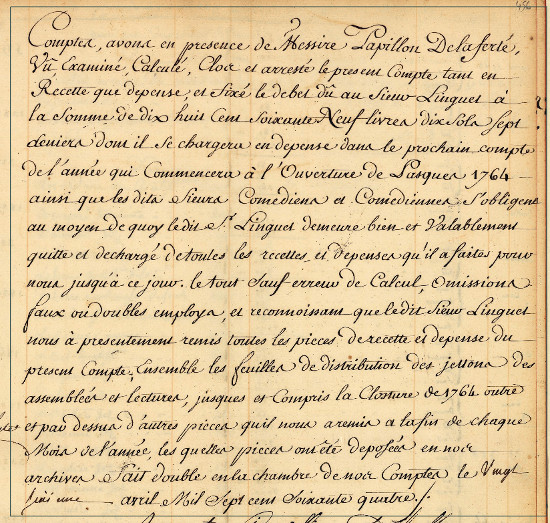 456
Comptes, avons en presence de Messire Papillon De laferté,
Vû Examiné, Calculé, Clos et arresté le present Compte tant en
Recette que depense, et fixé le debet dû au Sieur Linguet à
la Somme de dix huit Cent Soixante Neuf livres dix Sols Sept
deniers dont il Se chargera en depense dans le prochain compte
de l'année qui Commencera à l'Ouverture de Pasques 1764
ainsi que les dits Sieurs Comédiens et Comediennes S'obligent
au moyen de quoy ledit Sr. Linguet demeure bien et Valablement
quitte et dechargé de toutes les recettes et depenses qu'il a faites pour
nous jusqu'à ce jour. le tout Sauf erreur de Calcul, omissions
faux ou doubles employs, et reconnoissant que ledit Sieur Linguet
nous à presentement remis toutes les pieces de recette et depense du
present Compte, Ensemble les feuilles de distribution des jettons des
assemblées et lectures, jusques et Compris la Closture de 1764 outre
et par dessus d'autres pieces qu'il nous a remis a la fin de chaque
Mois de l'année, les quelles pieces ont été deposées en nos
archives Fait double en la chambre de nos Comptes le Vingt
avril Mil Sept cent Soixante quatre ./.